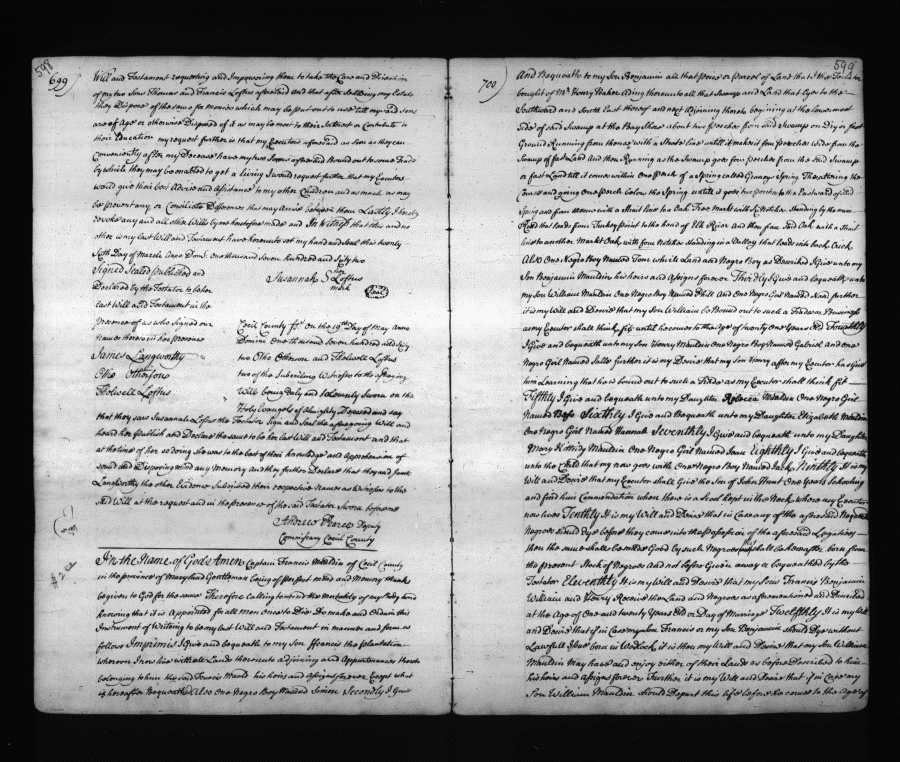 598
699
Will and Testament requesting and Impowering them to take the Care and Direction
of my two Sons Thomas and Francis Loftus aforesaid and that after Selling my Estate
they Dispose of the same for Monies which may be put out to use till my said Sons
are of Age or otherwise Disposed of it as may be most to their Interest or Contribute to
their Education my request further is that my Executors aforesaid as soon as they can
Conveniently after my Decease have my two Sons aforesaid Bound out to some Trade
by which they may be enabled to get a living I would request further that my Executors
would give their best Advice and Assistance to my other Children and as much as may
be prevent any or Conciliate Differences that may Arrise betwixt them Lastly I hereby
revoke any and all other Wills by me heretofore made and In Witness that this and no
other is my last Will and Testament have hereunto set my hand and Seal this twenty
Sixth Day of March Anno Dom: one thousand Seven hundred and Sixty two
Signed Sealed Published and
Declared by the Testator to be her
Last Will and Testament in the
presence of us who Signed our
Names thereto in her presence
James Langworthy
Otho Othoson
Tholwell Loftus
Susannah S Loftus
her
mark
Seal
Cecil County Ss. on the 19th Day of May Anno
Domini One thousand Seven hundred and Sixty
two Otho Othoson and Tholwell Loftus
two of the Subscribing Witnesses to the foregoing
Will being Duly and Solemnly Sworn on the
Holy Evangels of Almighty God and say
that they saw Susannah Loftus the Testator Sign and Seal the aforegoing Will and
heard her Publish and Declare the same to be her last Will and Testament and that
at the time of her so doing she was to the best of their knowledge and Apprehension of
sound and Disposing mind and Memory and they further Declare that they and James
Langworthy the other Evidence Subscribed their respective Names as Witnesses to the
said Will at the request and in the presence of the said Testator Sworn before me
Andrew Pearce Deputy
Commissary Cecil County
In the Name of God Amen Captain Francis Mauldin of Cecil County
in the province of Maryland Gentleman being of perfect mind and Memory thanks
be given to God for the same Therefore calling to mind the mortality of my Body and
knowing that it is Appointed for all men once to Die Do make and Ordain this
Instrument of Writeing to be my last Will and Testament in manner and form as
follows Imprimis I Give and bequeath to my Son Francis the plantation
whereon I now live with all Lands thereunto adjoining and Appurtenances thereto
belonging to him the said Francis his heirs and Assigns forever Except what
is hereafter Bequeathed Also one Negro Boy Named Simon Secondly I Give
599
700
And Bequeath to my Son Benjamin all that peice or parcel of Land that I the Testator
bought of Mr. Henry Baker adding thereunto all that Swamp and Land that Lyes to the
Southward and South East thereof and next adjoining thereto begining at the Lowermost
side of said Swamp at the Bay Shore about two perches from said Swamp on Dry or fast
Ground Running from thence with a Strate line until it makes four perches wide from the
Swamp of fast Land and then Running as the Swamp goes four perches from the said Swamp
or fast Land till it comes within one perch of a Spring called Spring Then altering the
Course and going one perch below the Spring until it goes two perches to the Eastward of said
Spring and from thence with a Strait line to a Oak Tree Markt with Six Notches Standing by the main
Road that leads from Turkey point to the head of Elk River and then from said Oak with a Strait
line to another Markt Oak with four Notches standing in a Valley that leads into back Creek
Also One Negro Boy Named Tom which Land and Negro Boy as Described I Give unto my
Son Benjamin Mauldin his heirs and Assigns forever Thirdly I Give and bequeath unto
my Son William Mauldin One Negro Boy Named Phill And One Negro Girl Named further
it is my Will and Desire that my Son William be Bound out to such a Trade or
as my Executor shall think fit until he comes to the Age of twenty one Years old Fourthly
I Give and bequeath unto my Son Henry Mauldin one Negro Boy Named Gabriel and one
Negro Girl Named Sall further it is my Desire that my Son Henry after my Executor has given
him Learning that he is bound out to such a Trade as my Executor shall think fit
Fifthly I Give and bequeath unto my Daughter Rebecca Mauldin One Negro Girl
Named Bess Sixthly I Give and Bequeath unto my Daughter Elizabeth Mauldin
One Negro Girl Named Hannah Seventhly I Give and bequeath unto my Daughter
Mary Mauldin One Negro Girl Named Eighthly I Give and bequeath
unto the Child that my now goes with One Negro Boy Named Jack Ninthly It is my
Will and Desire that my Executor shall Give the Son of John Hunt One Years Schooling
and find him Accommodation when there is a School kept in the Neck where my Executor
now lives Tenthly It is my Will and Desire that in Case any of the aforesaid Named
Negroes should dye before they come into the possession of the aforesaid Legatees
then the same shall be made Good by such Negroes as shall be hereafter born from
the present Stock of Negroes and not before Given away or bequeathed by the
Testator Eleventhly It is my Will and Desire that my Sons Francis Benjamin
William and Henry Receive their Land and Negroes as aforementioned and Described
at the Age of One and twenty Years Old or Day of Marriage Twelfthly It is my Will
and Desire that if in Case my Son Francis or my Son Benjamin Should Dye without
Lawfull Issue born in Wedlock it is then my Will and Desire that my Son William
Mauldin May have and enjoy either of their Lands as before Described to him
his heirs and Assigns forever Further it is my Will and Desire that if in Case my
Son William Mauldin should Depart this life before he comes to the Age of